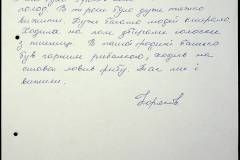 голод. В ті роки було дуже тяжко
вижити. Дуже багато людей вмирало.
Ходила на поле збирати колоски
з пшениці. В нашій родині батько
був гарним рибалкою, ходив на
ставок ловив рибу. Так ми і
вижили.